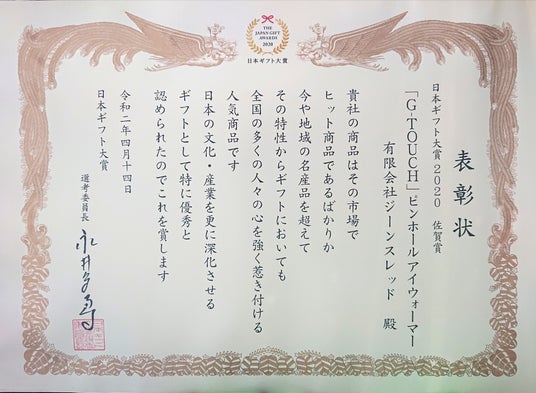 THE
JAPAN GIFT
AWARDS
2020
日本ギフト大賞
表彰状
日本ギフト大賞2020 佐賀賞
「G・TOUCH」ピンホールアイウォーマー
有限会社ジーンスレッド 殿
貴社の商品はその市場で
ヒット商品であるばかりか
今や地域の名産品を超えて
その特性からギフトにおいても
全国の多くの人々の心を強く惹き付ける
人気商品です
日本の文化・産業を更に深化させる
ギフトとして特に優秀と
認められたのでこれを賞します
令和二年四月十四日
日本ギフト大賞
選考委員長